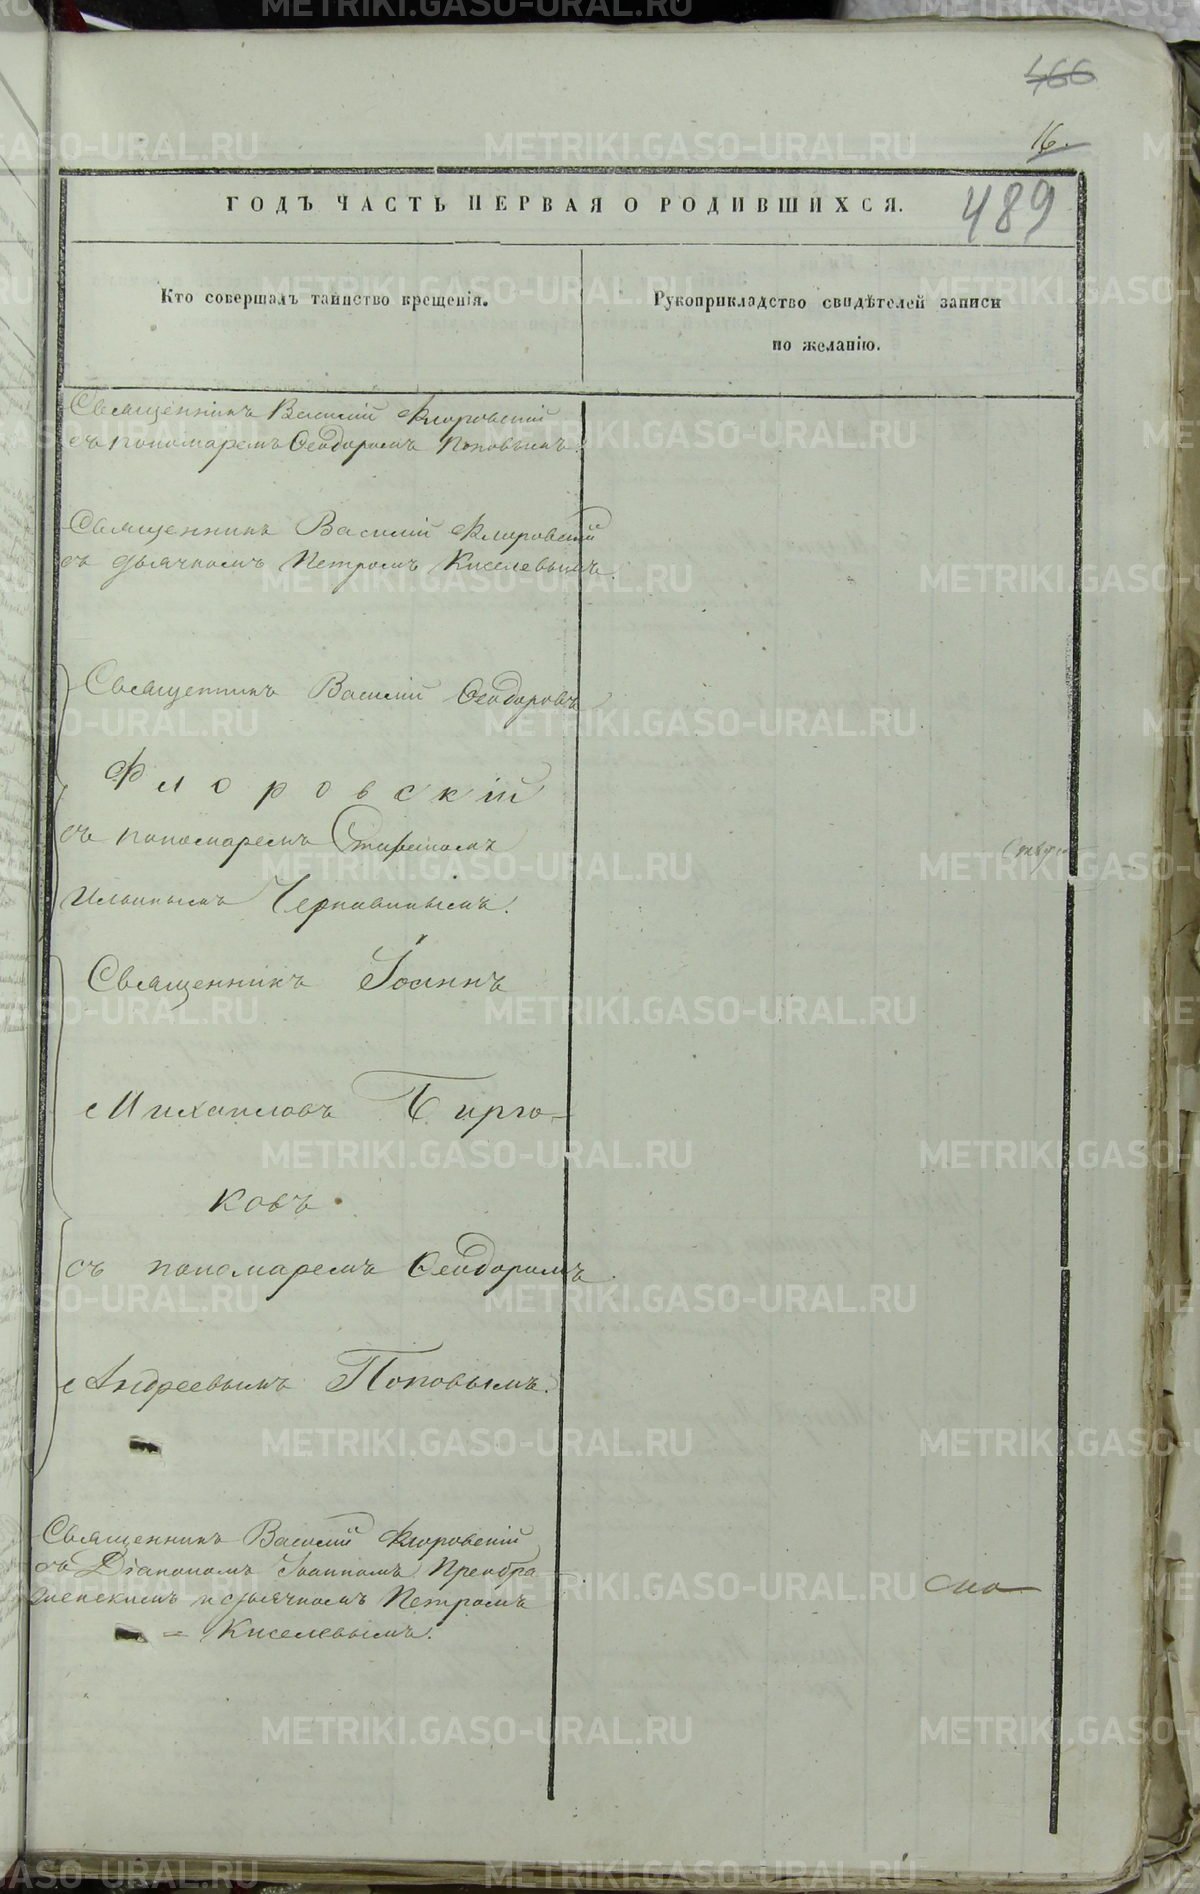 466
16.
489
ГОДЪ ЧАСТЬ ПЕРВАЯ О РОДИВШИХСЯ.
Кто совершалъ таинство крещенія.
Рукоприкладство свидѣтелей записи
по желанію.
Священникъ Василій Флоровскій
съ пономаремъ Ѳеодоромъ Поповымъ.
Священникъ Василій Флоровскій
съ дьячкомъ Петромъ Киселевымъ.
Священникъ Василій Ѳеодоровъ
Флоровскій
съ пономаремъ
Ильинымъ Чернавинымъ.
Священникъ Іоаннъ
Михаиловъ Бирю-
ковъ
съ пономаремъ Ѳеодоромъ
Андреевымъ Поповымъ.
Священникъ Василій Флоровскій
съ Діакономъ Іоанномъ Преобра
женскимъ и дьячкомъ Петромъ
= Киселевымъ.
METRIKI.GASO-URAL.RU